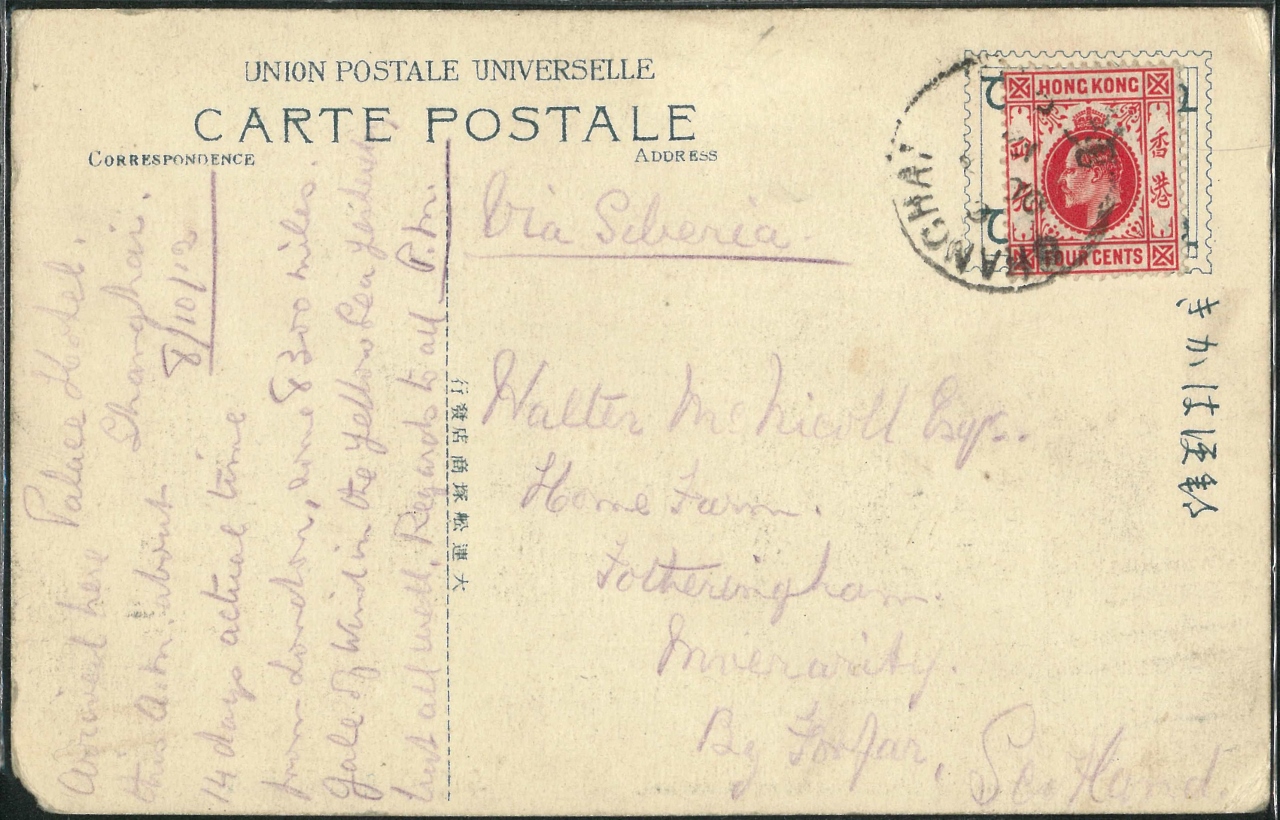 UNION POSTALE UNIVERSELLE
CARTE POSTALE
CORRESPONDENCE
ADDRESS
HONG KONG
香港
FOUR CENTS
SHANGHAI
きかは便郵
Palace Hotel.
Shanghai.
8/10/12
Arrived here
this a.m. about
14 days actual time
from London, some 8300 miles.
Gale of wind in the Yellow Sea yesterday
but all well. Regards to all P.M.
行發店商深松連大
Via Siberia.
Walter McNicoll Esqr.
Home Farm.
Fotheringham.
Inverarity.
By Forfar,
Scotland.